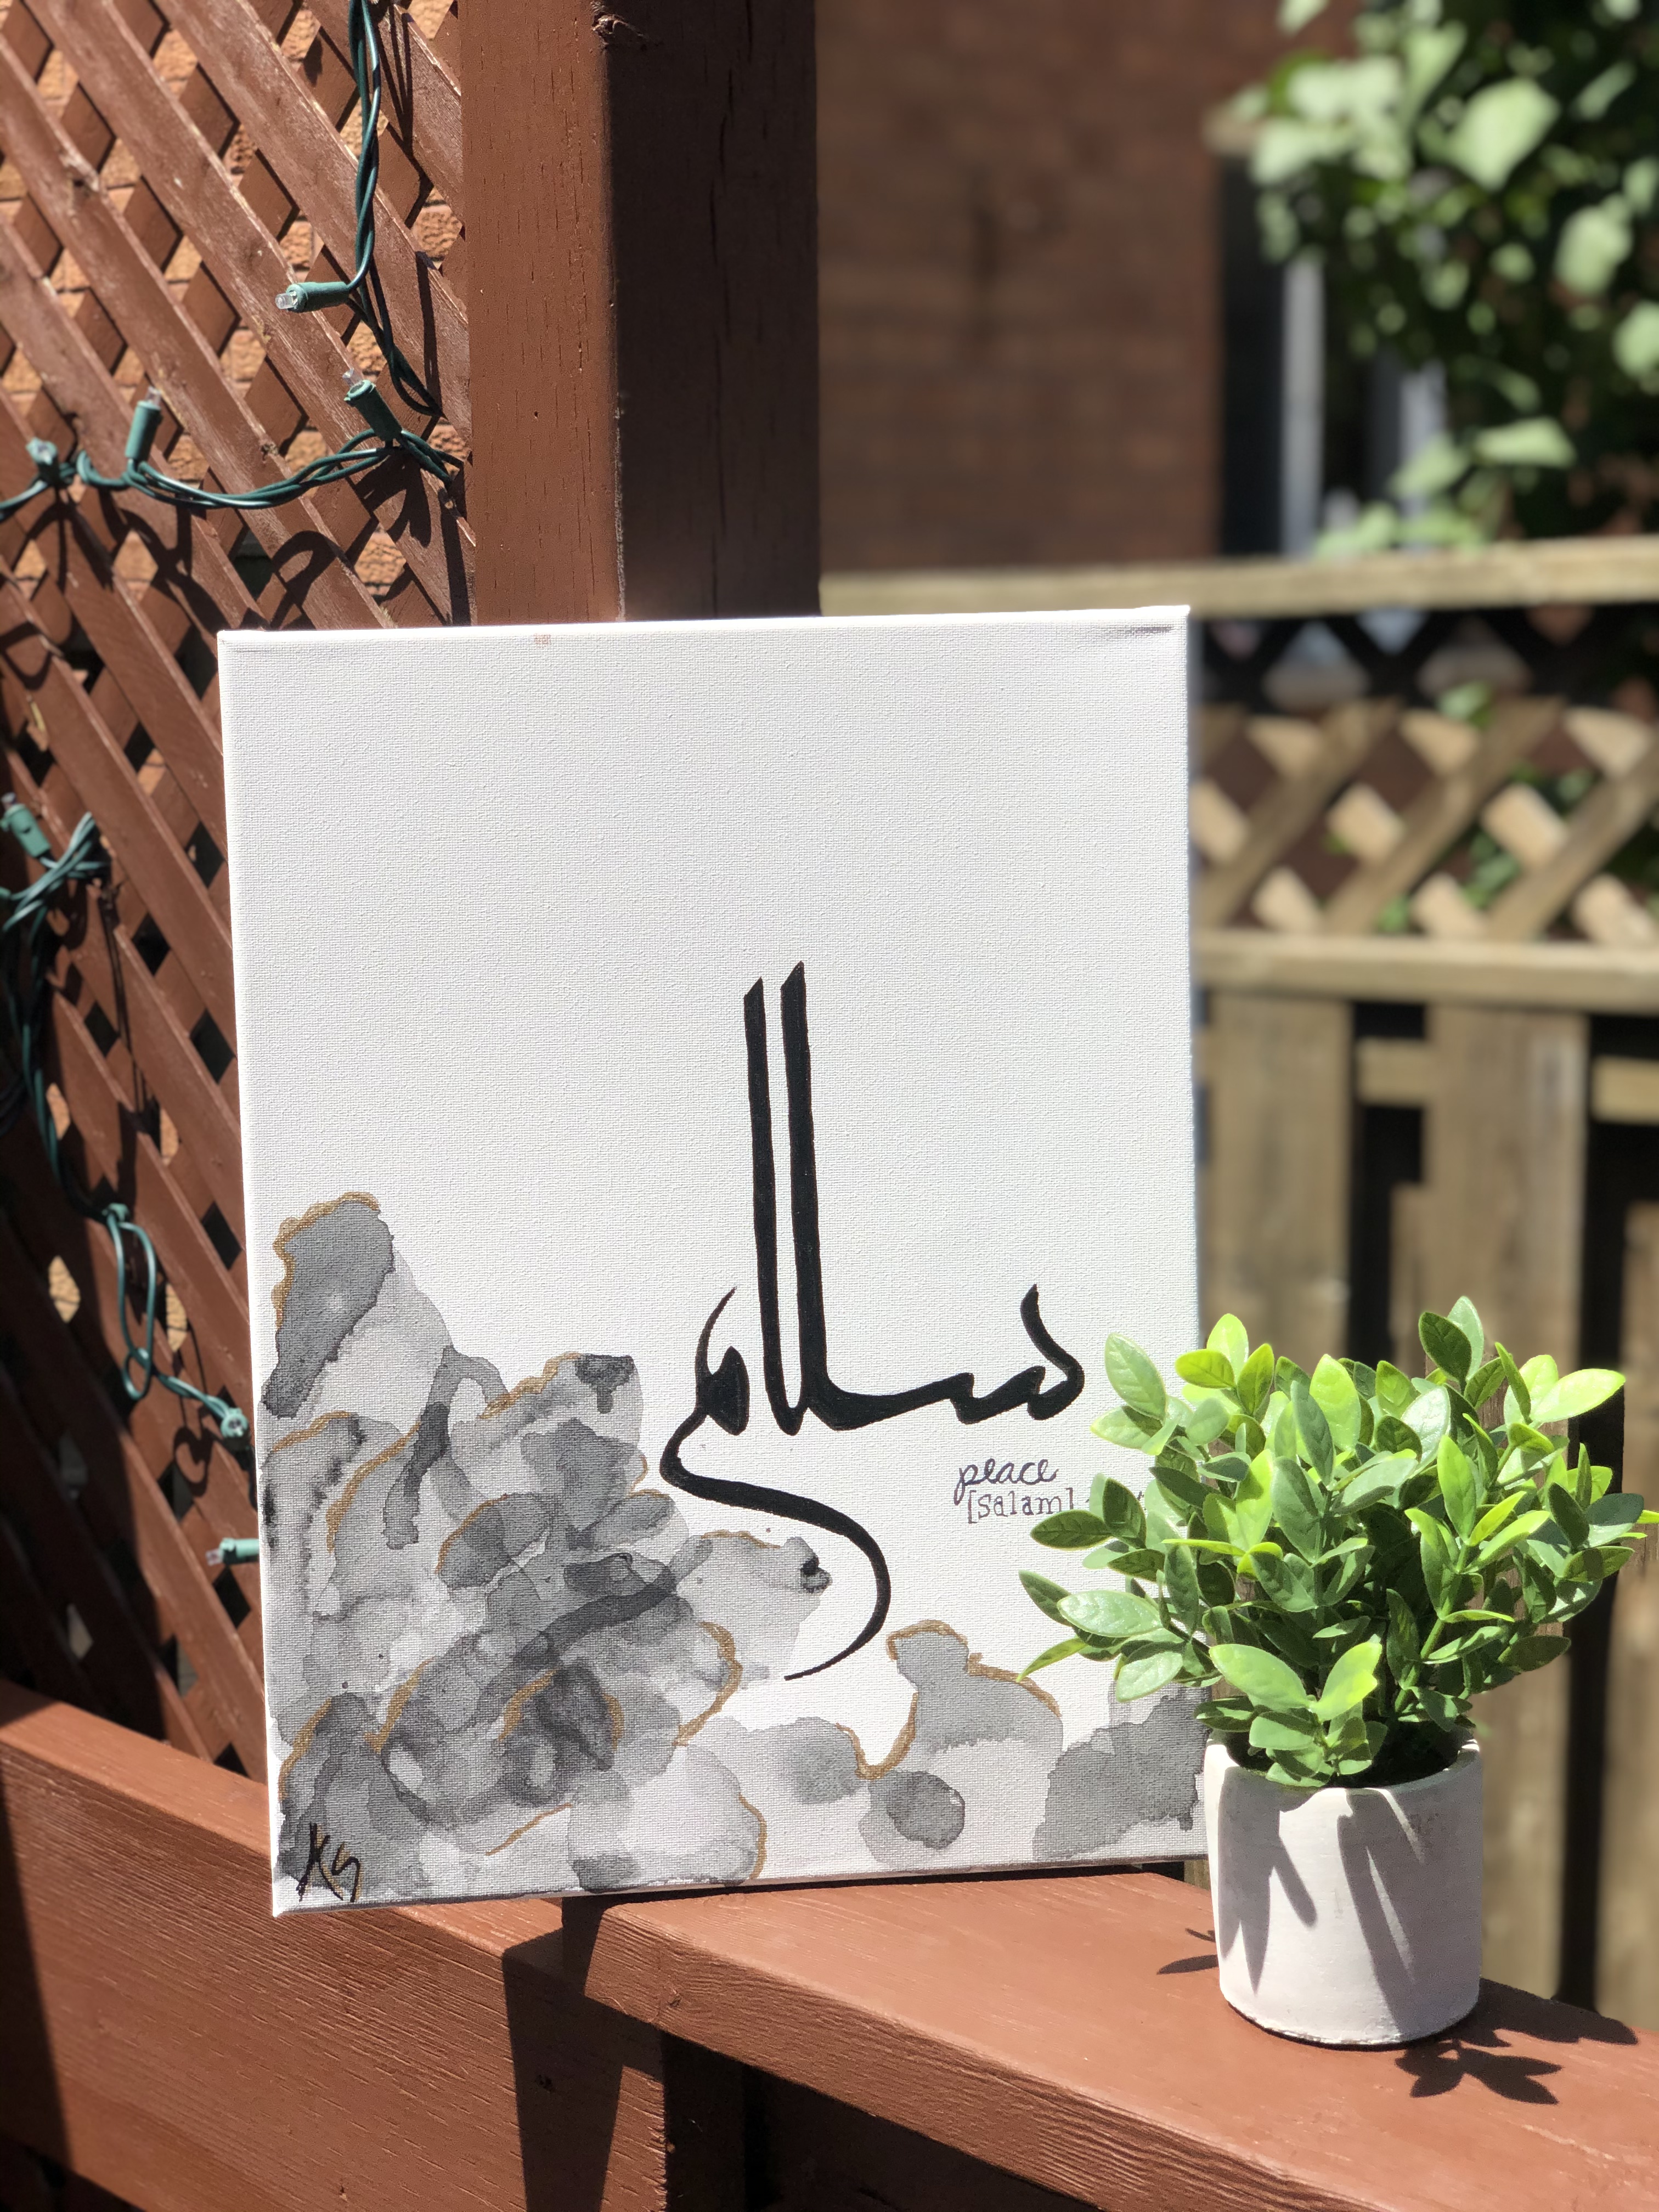 سلام
peace
[Salam]
KS